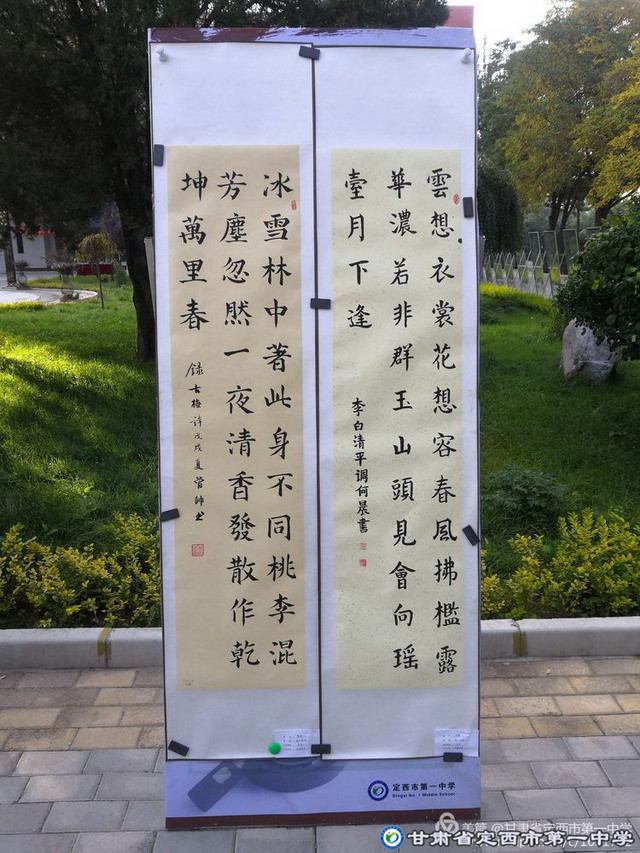 雲想衣裳花想容春風拂檻露
華濃若非群玉山頭見會向瑤
臺月下逢
李白清平调何晨書
冰雪林中著此身不同桃李混
芳塵忽然一夜清香發散作乾
坤萬里春
録古梅诗戊戌夏管师书
定西市第一中学
Dingxi No. 1 Middle School
美篇 @甘肃省定西市第一中学
甘肃省定西市第一中学